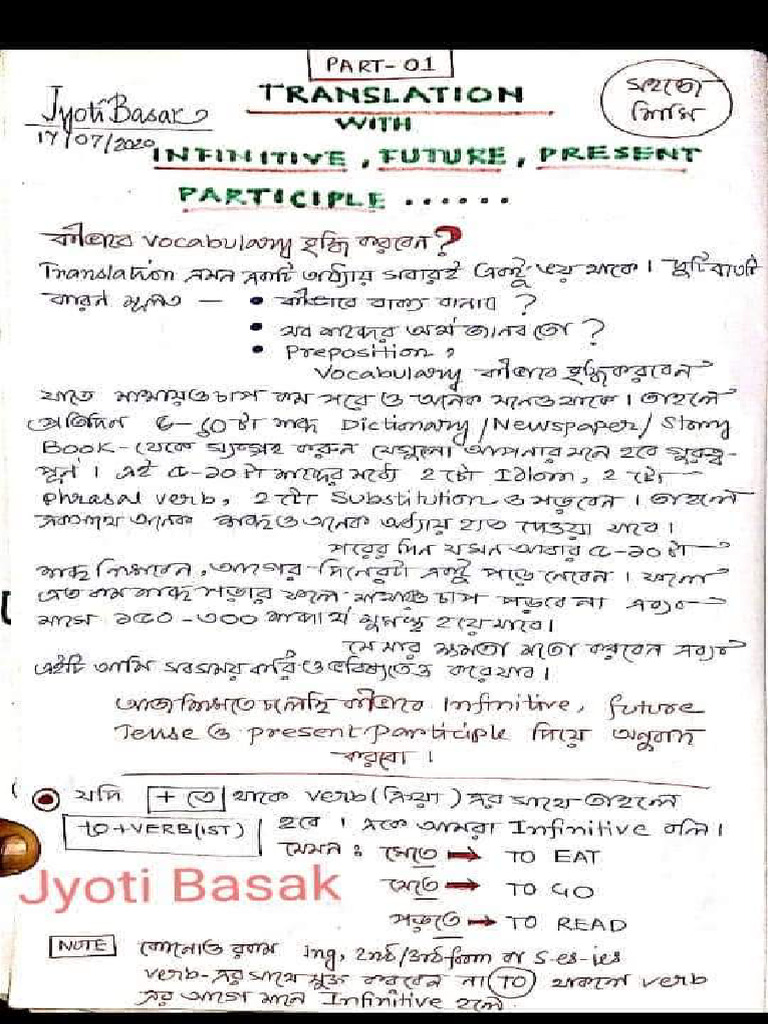 PART-01
Jyoti Basak
17/07/2020
TRANSLATION
সহজে
শিখি
WITH
INFINITIVE, FUTURE, PRESENT
PARTICIPLE ......
কীভাবে vocabulary বৃদ্ধি করবেন?
Translation এমন একটি অধ্যায় সবারই একটু ভয় থাকে।
কারন মূলত — • কীভাবে বাক্য বানাব ?
• সব শব্দের অর্থ জানব তো ?
• Preposition,
Vocabulary কীভাবে বৃদ্ধি করবেন
যাতে মাথায়ও চাপ কম পরে ও অনেক মনেও থাকে। তাহলে
প্রতিদিন ৫-১০টা শব্দ Dictionary/Newspaper/Story
Book-থেকে সংগ্রহ করুন যেগুলো আপনার মনে হবে গুরুত্ব-
পূর্ন। এই ৫-১০ টা শব্দের মধ্যে ২টো Idiom, ২টো
phrasal verb, ২টো Substitution ও পড়বেন। তাহলে
একসাথে অনেক শব্দ ও অনেক অধ্যায় হাত দেওয়া যাবে।
পরের দিন যখন আবার ৫-১০টা
শব্দ শিখবেন, আগের দিনেরটা একটু পড়ে নেবেন। ফলে
এত কম শব্দ পড়ার ফলে মাথায়ও চাপ পড়বে না এবং
মাসে ১৫০-৩০০ শব্দার্থ মুখস্থ হয়ে যাবে।
যে যার ক্ষমতা মতো করবেন এবং
এইটি আমি সবসময় করি ও ভবিষ্যতেও করে যাব।
আজ শিখতে চলেছি কীভাবে Infinitive, future
Tense ও present participle দিয়ে অনুবাদ
করবো।
যদি + তে থাকে verb(ক্রিয়া) এর সাথে তাহলে
TO+VERB(1ST) হবে। একে আমরা Infinitive বলি।
যেমন : খেতে → TO EAT
যেতে → TO GO
পড়তে → TO READ
Jyoti Basak
NOTE কোনোও রকম ing, 2nd/3rd form or s-es-ies
verb-এর সাথে যুক্ত করবেন না TO থাকলে verb
এর আগে মানে Infinitive হলে.